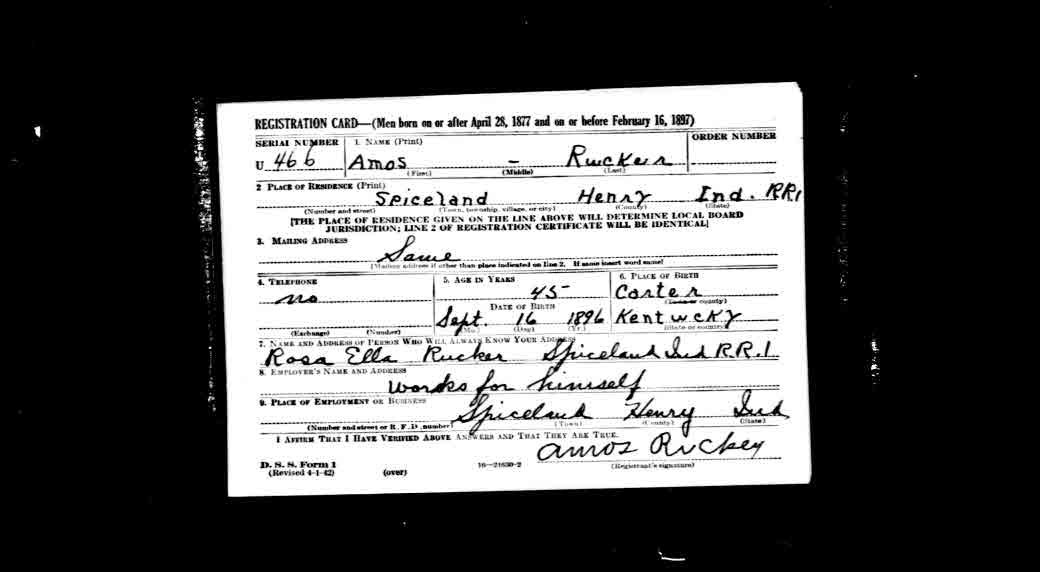 REGISTRATION CARD—(Men born on or after April 28, 1877 and on or before February 16, 1897)
SERIAL NUMBER 1. NAME (Print) ORDER NUMBER
U 466 Amos – Rucker
(First) (Middle) (Last)
2 PLACE OF RESIDENCE (Print)
Spiceland Henry Ind. RR1
(Number and street) (Town, township, village, or city) (County) (State)
[THE PLACE OF RESIDENCE GIVEN ON THE LINE ABOVE WILL DETERMINE LOCAL BOARD
JURISDICTION; LINE 2 OF REGISTRATION CERTIFICATE WILL BE IDENTICAL]
3. MAILING ADDRESS
Same
[Mailing address if other than place indicated on line 2. If same insert word same]
4. TELEPHONE 5. AGE IN YEARS 6. PLACE OF BIRTH
no 45 Carter
DATE OF BIRTH (Town or county)
Sept. 16 1896 Kentucky
(Exchange) (Number) (Mo.) (Day) (Yr.) (State or country)
7. NAME AND ADDRESS OF PERSON WHO WILL ALWAYS KNOW YOUR ADDRESS
Rosa Ella Rucker Spiceland Ind R.R.1
8. EMPLOYER'S NAME AND ADDRESS
works for himself
9. PLACE OF EMPLOYMENT OR BUSINESS
Spiceland Henry Ind
(Number and street or R. F. D. number) (Town) (County) (State)
I AFFIRM THAT I HAVE VERIFIED ABOVE ANSWERS AND THAT THEY ARE TRUE.
Amos Rucker
D. S. S. Form 1 16—21630-2 (Registrant's signature)
(Revised 4-1-42) (over)